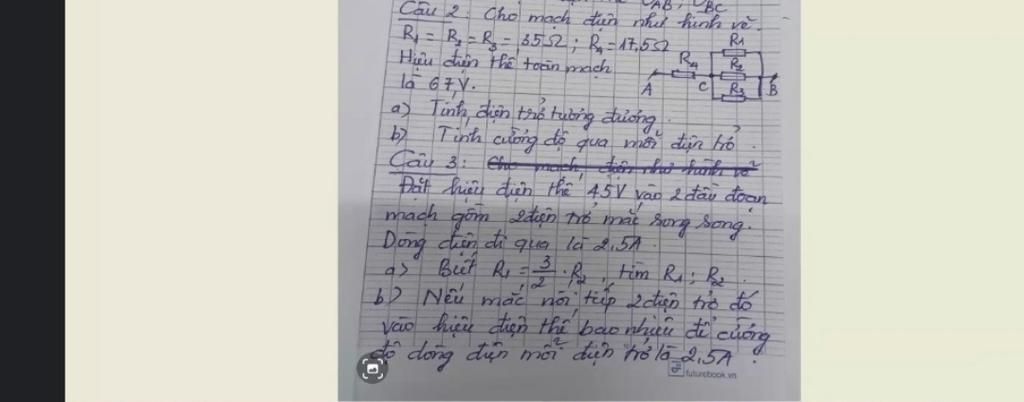 UAB, UBC
Câu 2: Cho mạch điện như hình vẽ.
R1 = R2 = R3 = 35Ω; R4 = 17,5Ω
R1
Hiệu điện thế toàn mạch
R4
R2
là 67V.
A
C
R3
B
a) Tính điện trở tương đương.
b) Tính cường độ qua mỗi điện trở.
Câu 3: Cho mạch điện như hình vẽ
Đặt hiệu điện thế 45V vào 2 đầu đoạn
mạch gồm 2 điện trở mắc song song.
Dòng điện đi qua là 2,5A.
a) Biết R1 = 3/2 . R2, tìm R1; R2.
b) Nếu mắc nối tiếp 2 điện trở đó
vào hiệu điện thế bao nhiêu để cường
độ dòng điện mỗi điện trở là 2,5A.
futurebook.vn